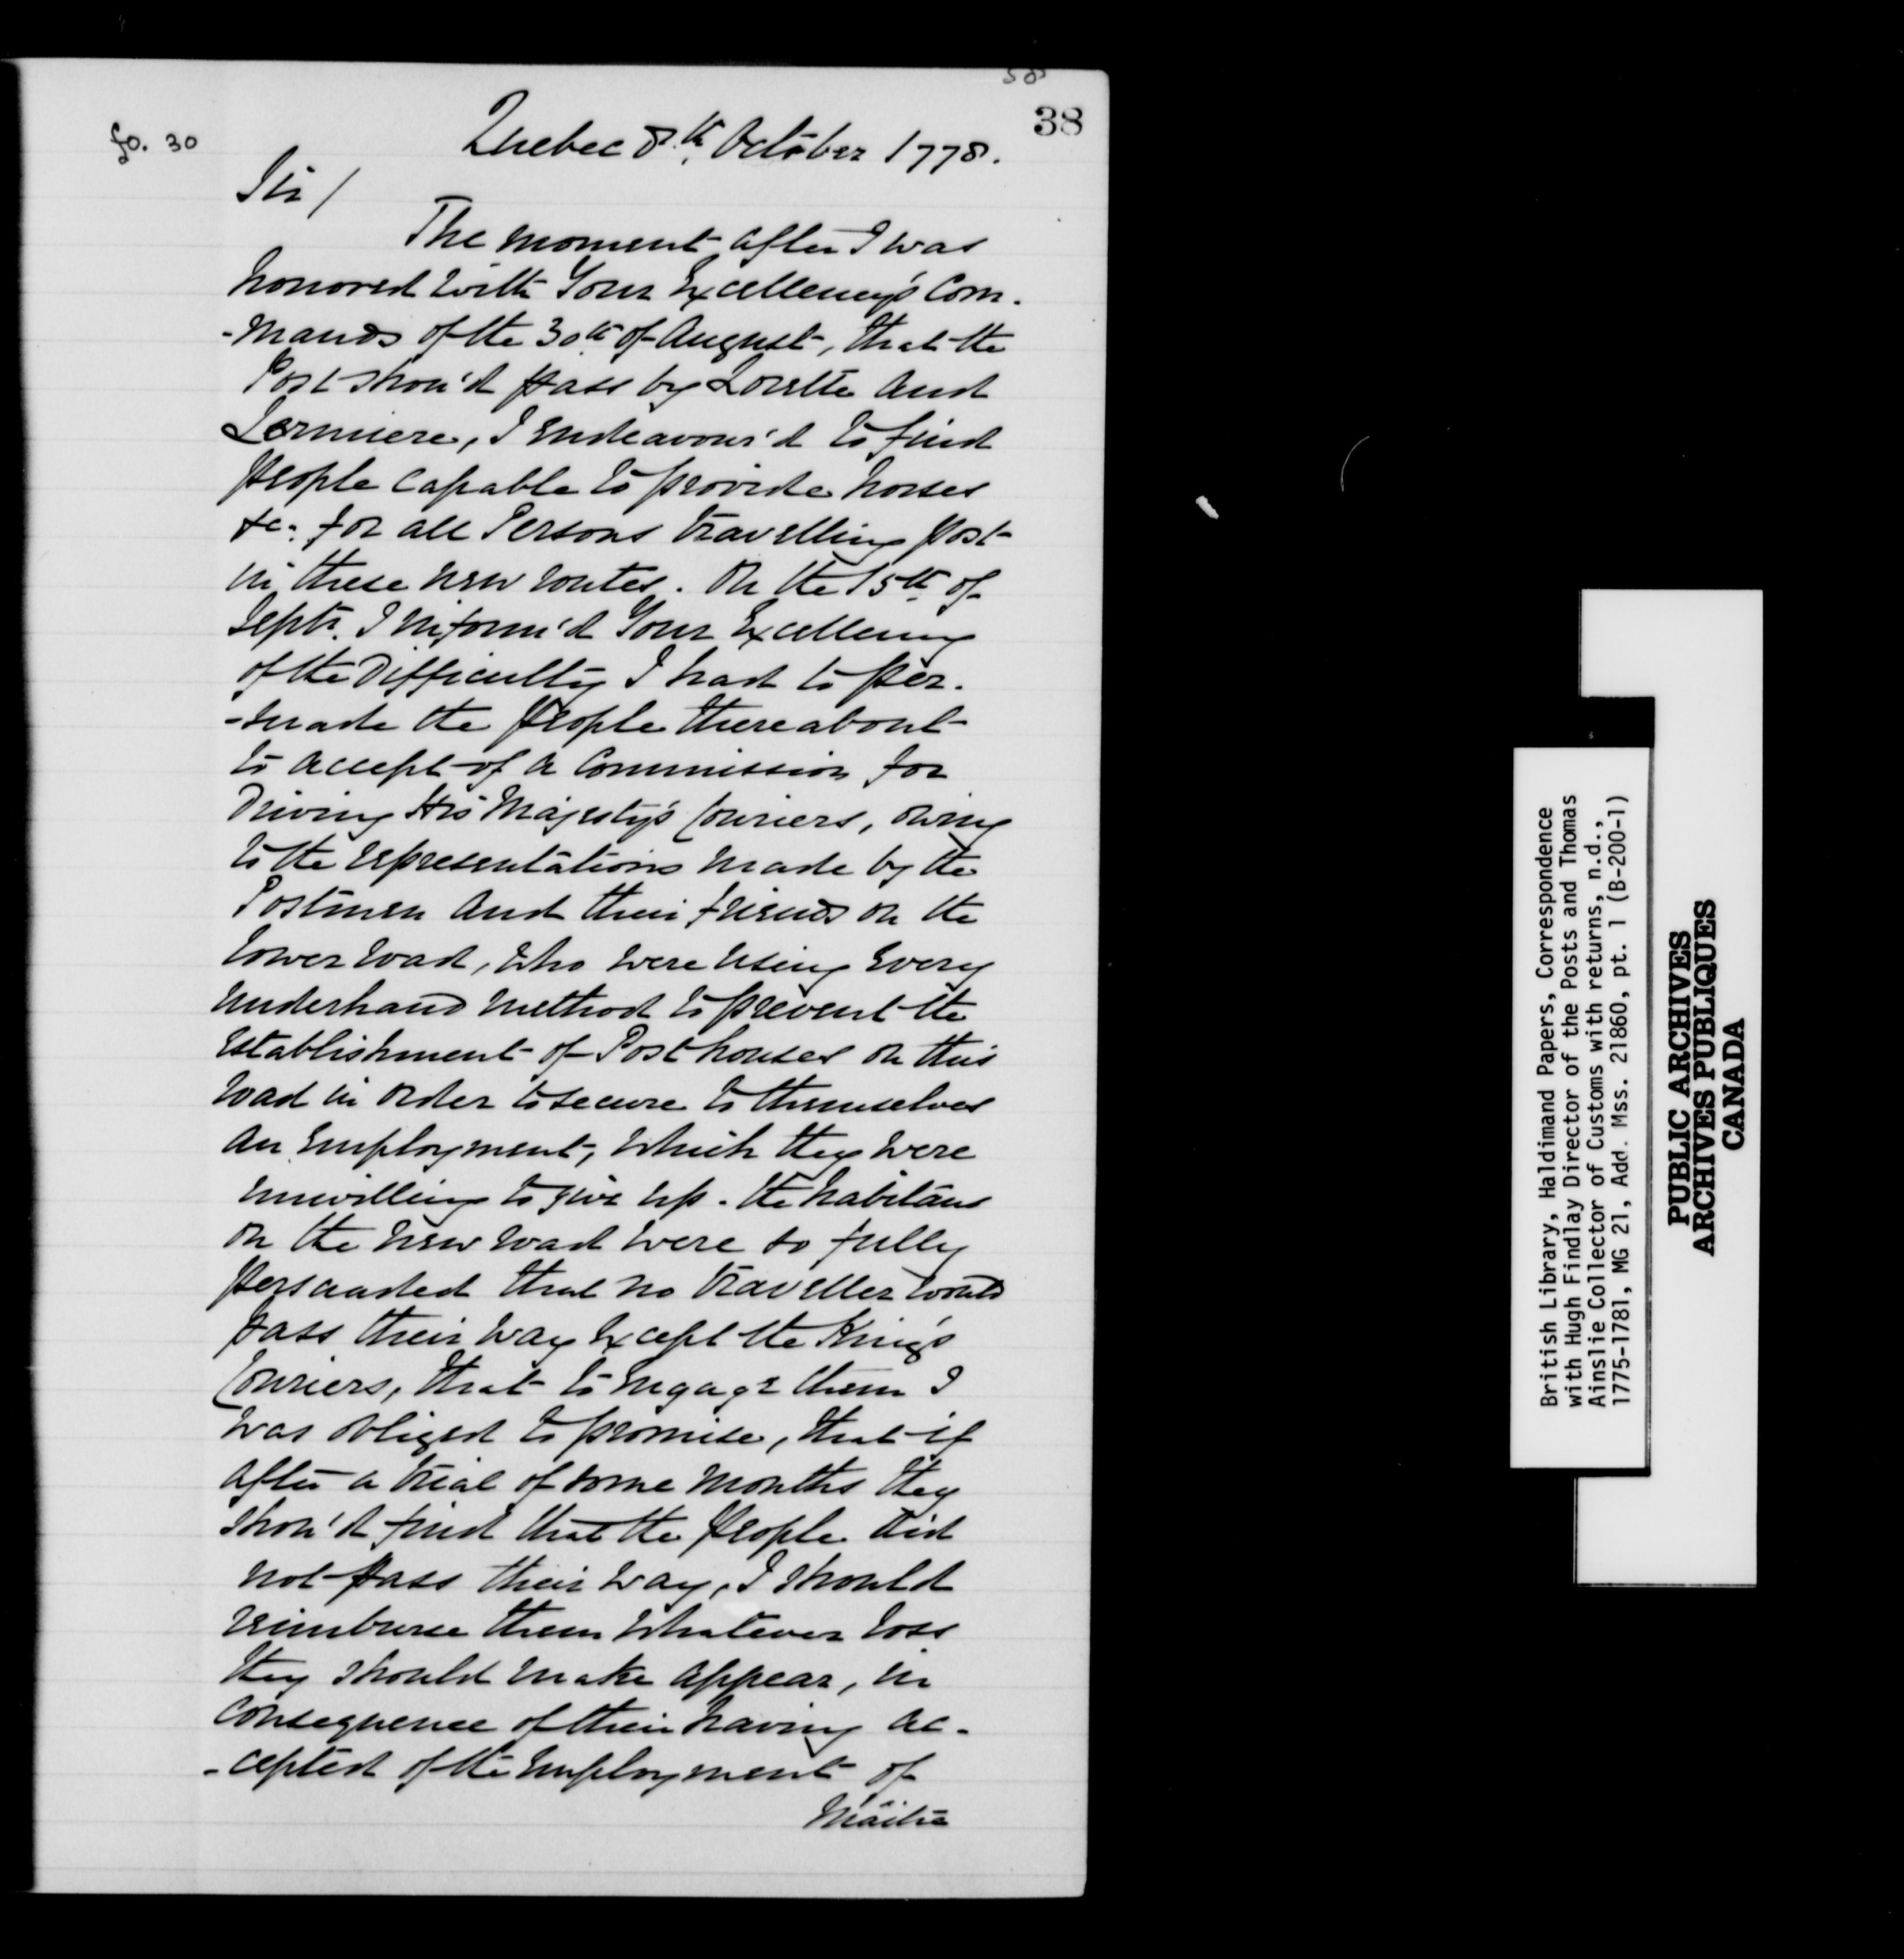 38
38
fo. 30
Quebec 8.th October 1778.
Sir/
The moment after I was
honored with Your Excellency's Com-
-mands of the 30th of August, that the
Post shou'd pass by Lorette and
Jermiere, I endeavour'd to find
people capable to provide horses
&c. for all Persons travelling post
in these new routes. On the 15th of
Septr. I inform'd Your Excellency
of the Difficulty I had to per-
-suade the people thereabout
to accept of a Commission for
Driving His Majesty's Couriers, owing
to the representations made by the
Postmen and their friends on the
lower road, who were using every
underhand method to prevent the
establishment of Post houses on this
road in order to secure to themselves
an employment, which they were
unwilling to give up. the habitans
on the new road were so fully
persuaded that no traveller would
pass their way except the King's
Couriers, that to engage them I
was obliged to promise, that if
after a trial of some months they
shou'd find that the people did
not pass their way, I should
reimburse them whatever loss
they should make appear, in
consequence of their having ac-
-cepted of the employment of
Maitre
British Library, Haldimand Papers, Correspondence
with Hugh Findlay Director of the Posts and Thomas
Ainslie Collector of Customs with returns, n.d.,
1775-1781, MG 21, Add. Mss. 21860, pt. 1 (B-200-1)
PUBLIC ARCHIVES
ARCHIVES PUBLIQUES
CANADA